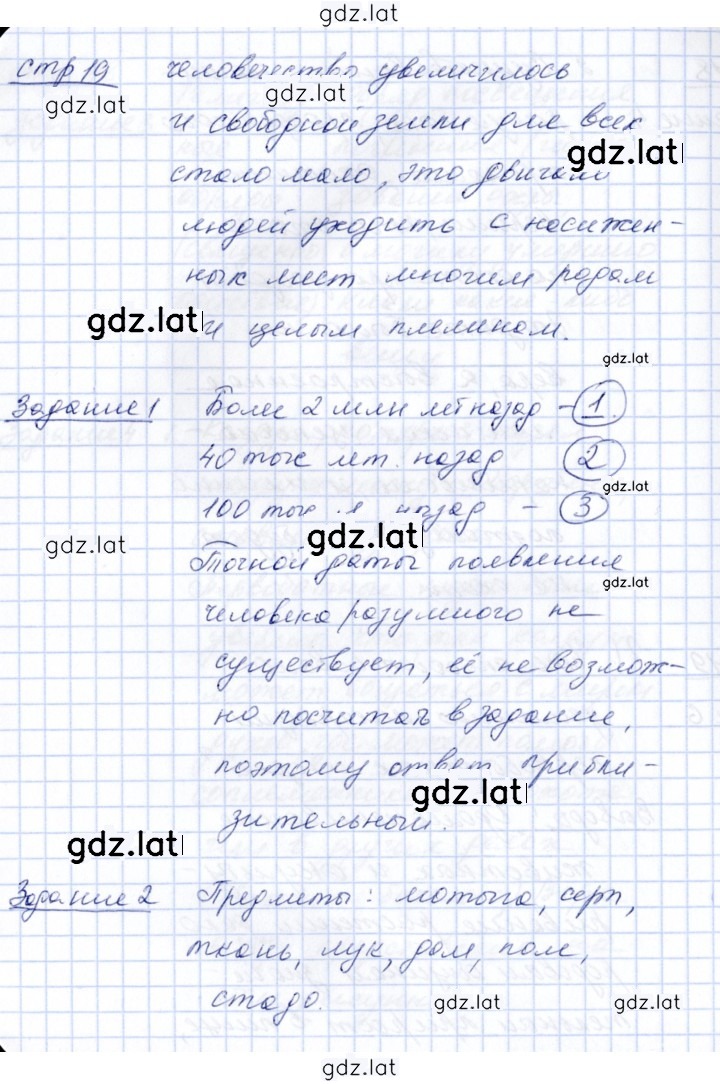 gdz.lat
стр 19 человечество увеличилось
gdz.lat gdz.lat
и свободной земли для всех
gdz.lat
стало мало, это двигало
людей уходить с насижен-
ных мест многим родам
gdz.lat
и целым племенам.
gdz.lat
Задание 1 Более 2 млн лет назад - 1.
40 тыс лет. назад 2
gdz.lat
100 тыс назад - 3
gdz.lat gdz.lat
Точной даты появления
gdz.lat
человека разумного не
существует, её не возмож-
но посчитать в задание,
поэтому ответ прибли-
gdz.lat
зительный.
gdz.lat
Задание 2 Предметы: мотыга, серп,
ткань, лук, дом, поле,
стадо.
gdz.lat gdz.lat
gdz.lat